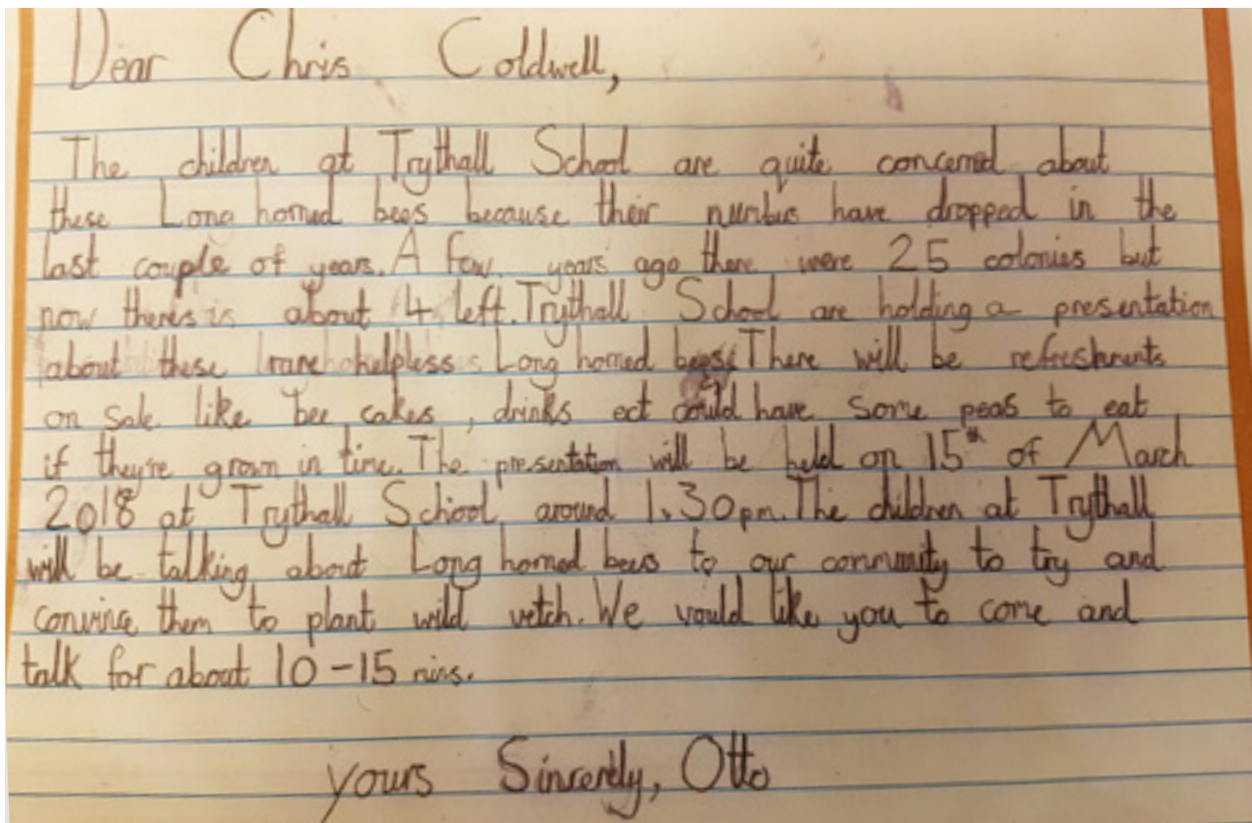 Dear Chris Coldwell,
The children at Trythall School are quite concerned about
these Long horned bees because their numbus have dropped in the
last couple of years. A few years ago there were 25 colonies but
now theres is about 4 left. Trythall School are holding a presentation
about these rare helpless Long horned bees. There will be refreshments
on sale like bee cakes, drinks ect could have some peas to eat
if they're grown in time. The presentation will be held on 15th of March
2018 at Trythall School around 1.30pm. The children at Trythall
will be talking about Long horned bees to our community to try and
convince them to plant wild vetch. We would like you to come and
talk for about 10-15 mins.
yours Sincerely, Otto